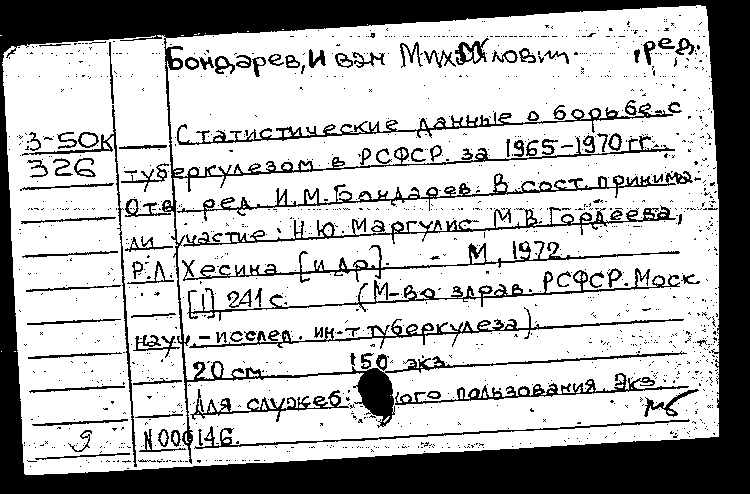 Бондарев, Иван Михайлович. , ред.
3-50к Статистические данные о борьбе с
326 туберкулезом в РСФСР. за 1965-1970 гг.
Отв. ред. И.М.Бондарев. В сост. принима-
ли участие: Н.Ю. Маргулис, М.В. Гордеева,
Р.Л. Хесина [и др.]. - М, 1972.
[1], 241 с. (М-во здрав. РСФСР. Моск
науч.-исслед. ин-т туберкулеза).
20 см 150 экз.
Для служеб. ного пользования. Экз
9 N 000146. мб